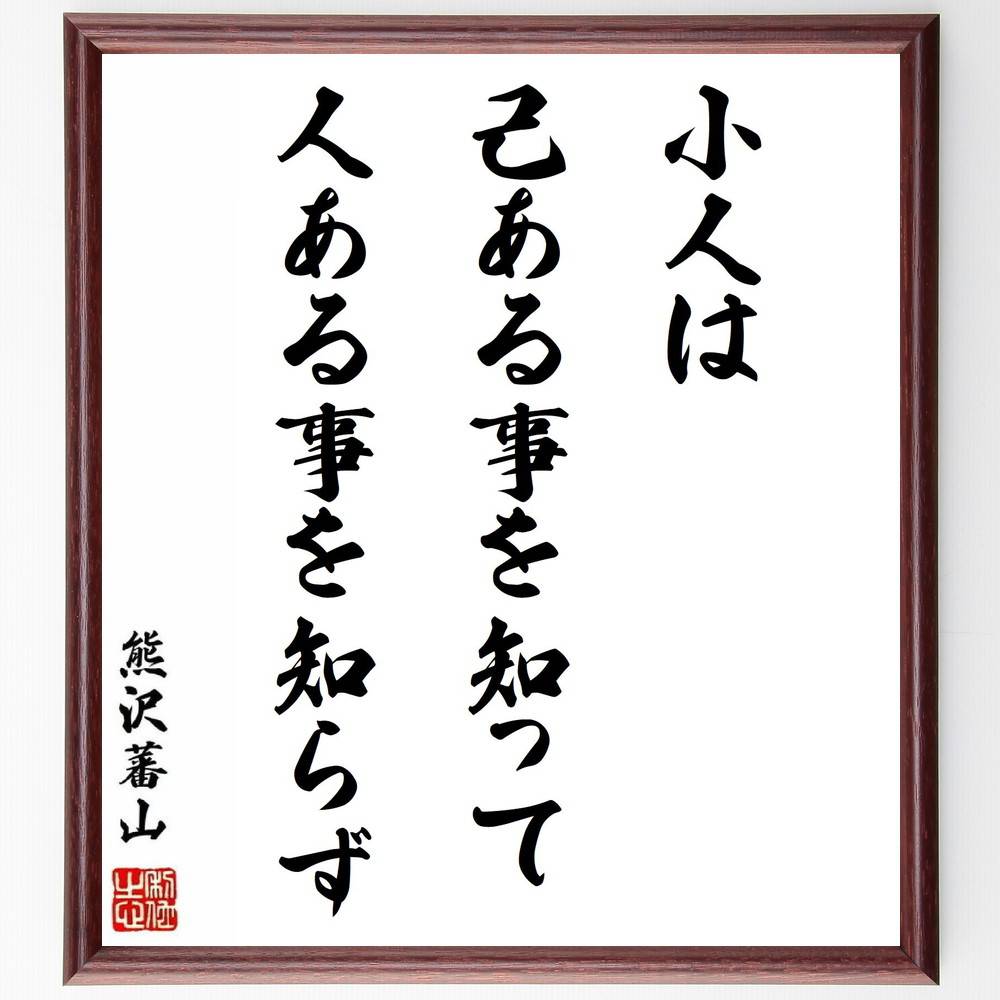 小人は
己ある事を知って
人ある事を知らず
熊沢蕃山